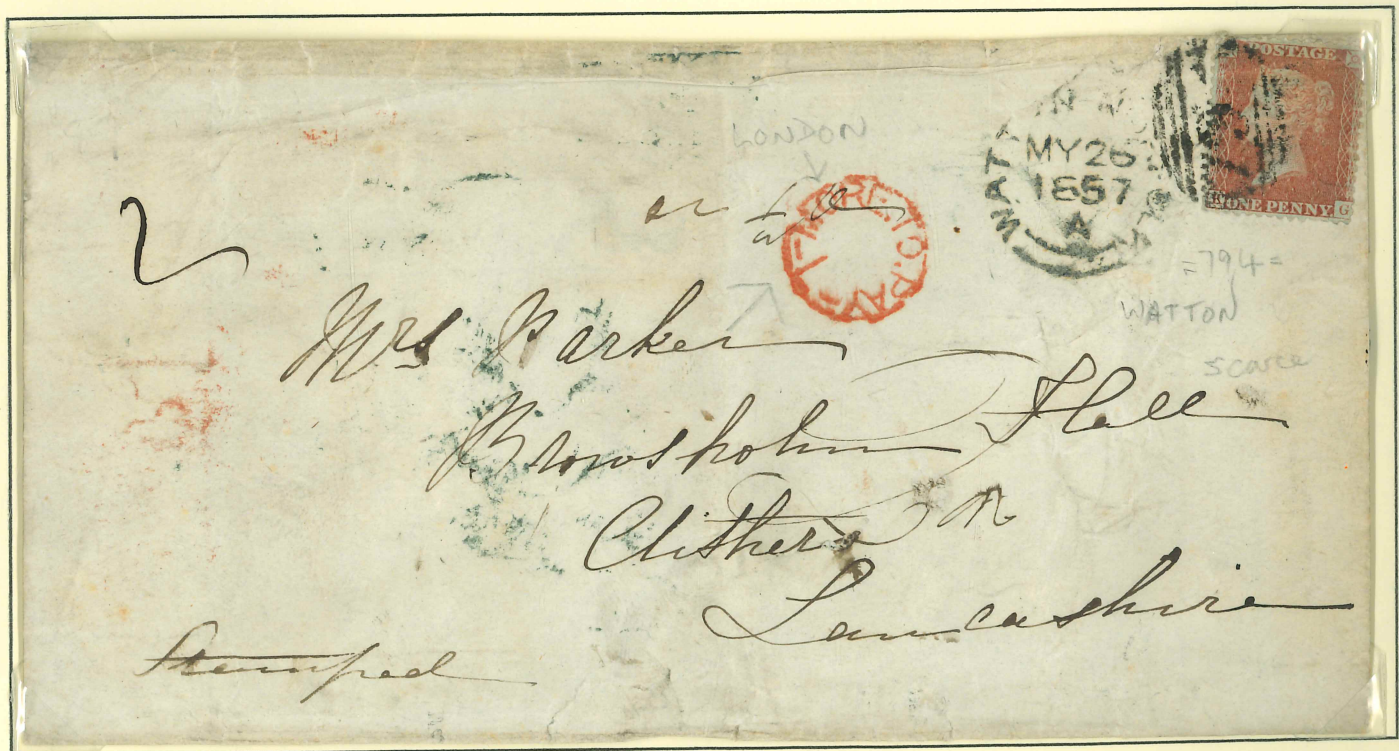 POSTAGE
ONE PENNY G
MY 26
1857
A
LONDON
MORE.TO.PAY
=794=
WATTON
scarce
Mrs Parker
Browsholm Hall
Clithero
Lancashire
Stamped